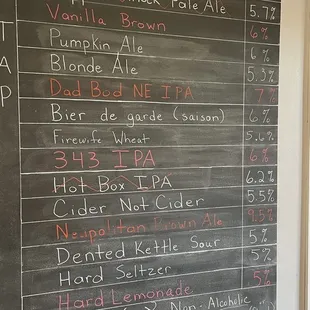 Pale Ale 5.7%
Vanilla Brown 6%
Pumpkin Ale 6%
Blonde Ale 5.3%
Dad Bod NE IPA 7%
Bier de garde (saison) 6%
Firewife Wheat 5.6%
343 IPA 6%
Hot Box IPA 6.2%
Cider Not Cider 5.5%
Neapolitan Brown Ale 9.5%
Dented Kettle Sour 5%
Hard Seltzer 5%
Hard Lemonade 5%
Non-Alcoholic
TAP